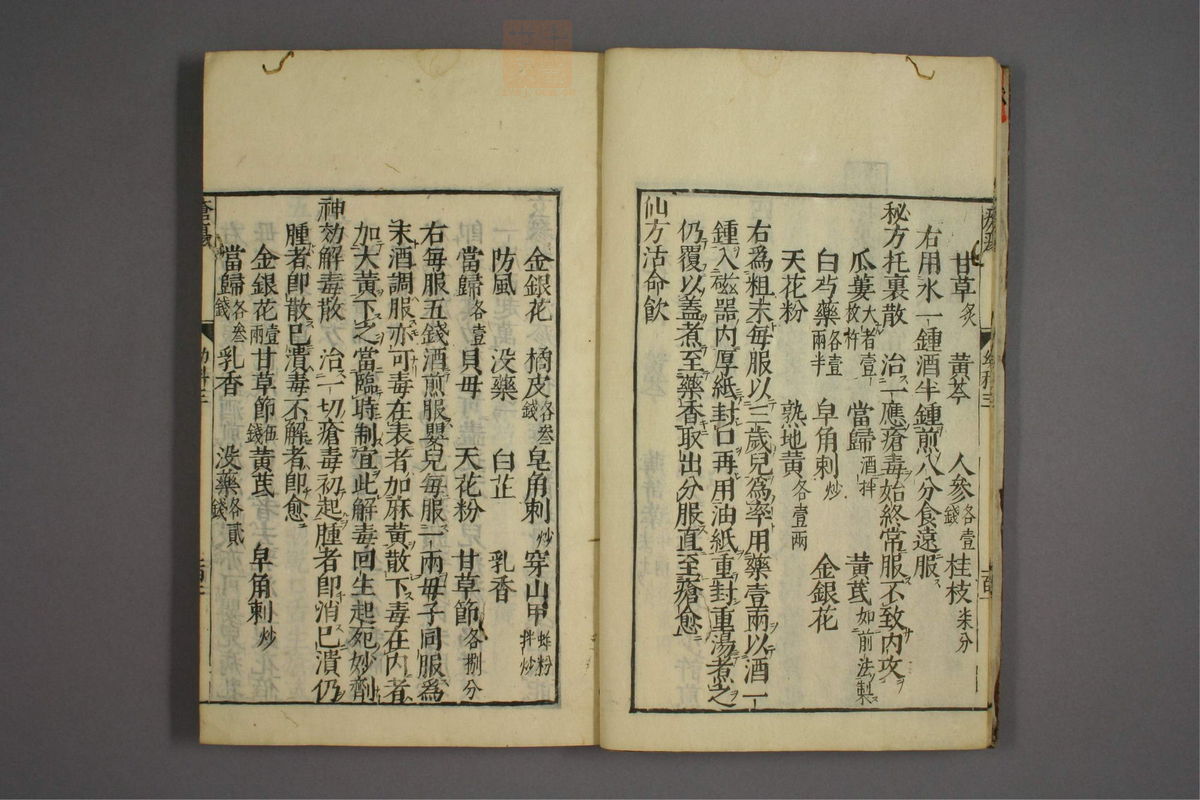 甘草炙 黃芩 人參各壹錢 桂枝柒分
右用水一鍾酒半鍾煎八分食遠服
秘方托裏散 治一應瘡毒始終常服不致內攻
瓜蔞大者壹枚杵 當歸酒拌 黃芪如前法製
白芍藥各壹兩半 皁角刺炒 金銀花
天花粉 熟地黃各壹兩
右爲粗末每服以三歲兒爲率用藥壹兩以酒一
鍾入磁器內厚紙封口再用油紙重封重湯煮之
仍覆以蓋煮至藥香取出分服直至瘡愈
仙方活命飲
金銀花 橘皮各叁錢 皂角刺炒 穿山甲蛤粉拌炒
防風 沒藥 白芷 乳香
當歸各壹錢 貝母 天花粉 甘草節各捌分
右每服五錢酒煎服嬰兒每服一兩母子同服爲
末酒調服亦可毒在表者加麻黃散下毒在內者
加大黃下之當臨時制宜此解毒回生起死妙劑
神效解毒散 治一切瘡毒初起腫者卽消已潰仍
腫者卽散已潰毒不解者卽愈
金銀花壹兩 甘草節伍錢 黃芪 皁角刺炒
當歸各叁錢 乳香 沒藥各貳錢